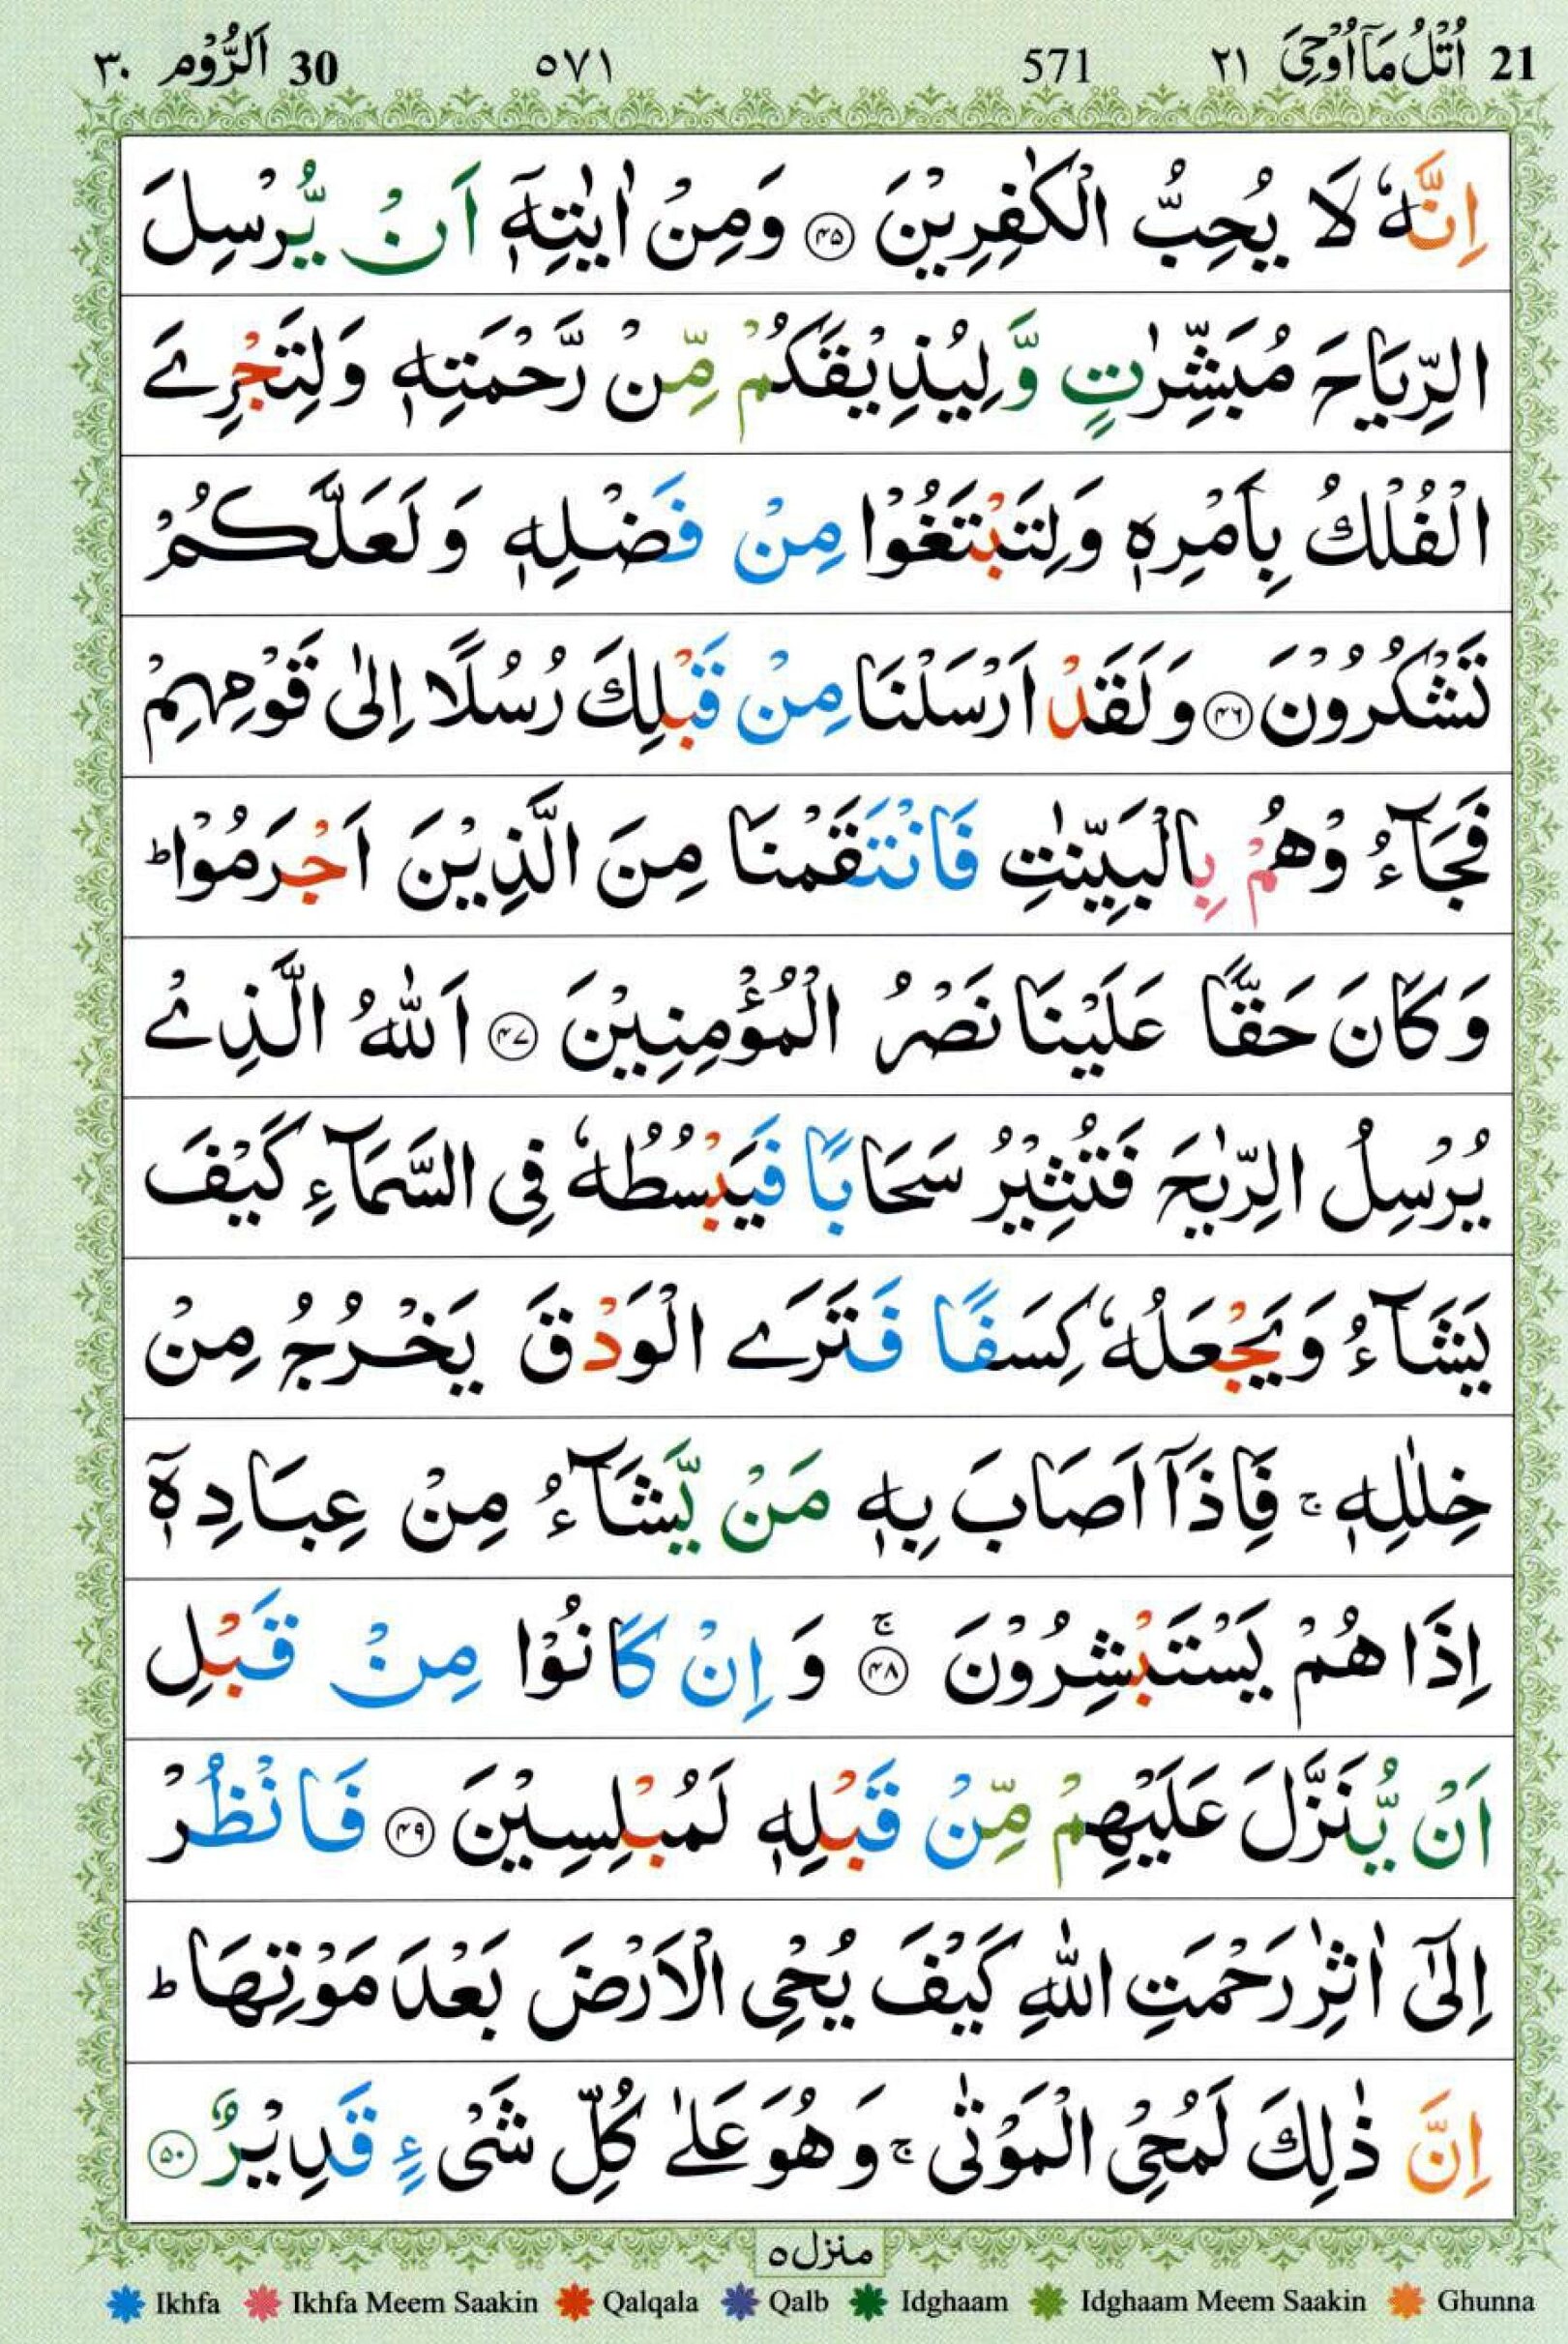 21 اُتْلُ مَاۤ اُوْحِیَ ٢١ 571 ٥٧١ 30 اَلرُّوْم ٣٠
اِنَّهٗ لَا یُحِبُّ الْكٰفِرِیْنَ ﴿۴۵﴾ وَمِنْ اٰیٰتِهٖۤ اَنْ یُّرْسِلَ
الرِّیَاحَ مُبَشِّرٰتٍ وَّلِیُذِیْقَكُمْ مِّنْ رَّحْمَتِهٖ وَلِتَجْرِیَ
الْفُلْكُ بِاَمْرِهٖ وَلِتَبْتَغُوْا مِنْ فَضْلِهٖ وَلَعَلَّكُمْ
تَشْكُرُوْنَ ﴿۴۶﴾ وَلَقَدْ اَرْسَلْنَا مِنْ قَبْلِكَ رُسُلًا اِلٰی قَوْمِهِمْ
فَجَآءُوْهُمْ بِالْبَیِّنٰتِ فَانْتَقَمْنَا مِنَ الَّذِیْنَ اَجْرَمُوْا ؕ
وَكَانَ حَقًّا عَلَیْنَا نَصْرُ الْمُؤْمِنِیْنَ ﴿۴۷﴾ اَللّٰهُ الَّذِیْ
یُرْسِلُ الرِّیٰحَ فَتُثِیْرُ سَحَابًا فَیَبْسُطُهٗ فِی السَّمَآءِ كَیْفَ
یَشَآءُ وَیَجْعَلُهٗ كِسَفًا فَتَرَی الْوَدْقَ یَخْرُجُ مِنْ
خِلٰلِهٖ ۚ فَاِذَاۤ اَصَابَ بِهٖ مَنْ یَّشَآءُ مِنْ عِبَادِهٖۤ
اِذَا هُمْ یَسْتَبْشِرُوْنَ ۚ﴿۴۸﴾ وَاِنْ كَانُوْا مِنْ قَبْلِ
اَنْ یُّنَزَّلَ عَلَیْهِمْ مِّنْ قَبْلِهٖ لَمُبْلِسِیْنَ ﴿۴۹﴾ فَانْظُرْ
اِلٰۤی اٰثٰرِ رَحْمَتِ اللّٰهِ كَیْفَ یُحْیِ الْاَرْضَ بَعْدَ مَوْتِهَا ؕ
اِنَّ ذٰلِكَ لَمُحْیِ الْمَوْتٰی ۚ وَهُوَ عَلٰی كُلِّ شَیْءٍ قَدِیْرٌ ﴿۵۰﴾
منزل ٥
Ikhfa Ikhfa Meem Saakin Qalqala Qalb Idghaam Idghaam Meem Saakin Ghunna